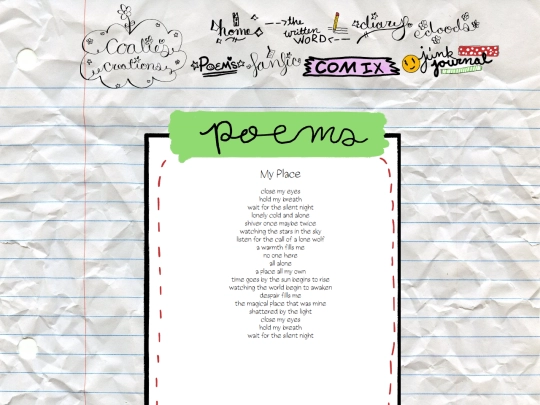 Coalies
Creations
home
--->the
written
WORD<---
diary
doods
POEMS
fanfic
COMIX
junk
journal
poems
My Place
close my eyes
hold my breath
wait for the silent night
lonely cold and alone
shiver once maybe twice
watching the stars in the sky
listen for the call of a lone wolf
a warmth fills me
no one here
all alone
a place all my own
time goes by the sun begins to rise
watching the world begin to awaken
despair fills me
the magical place that was mine
shattered by the light
close my eyes
hold my breath
wait for the silent night